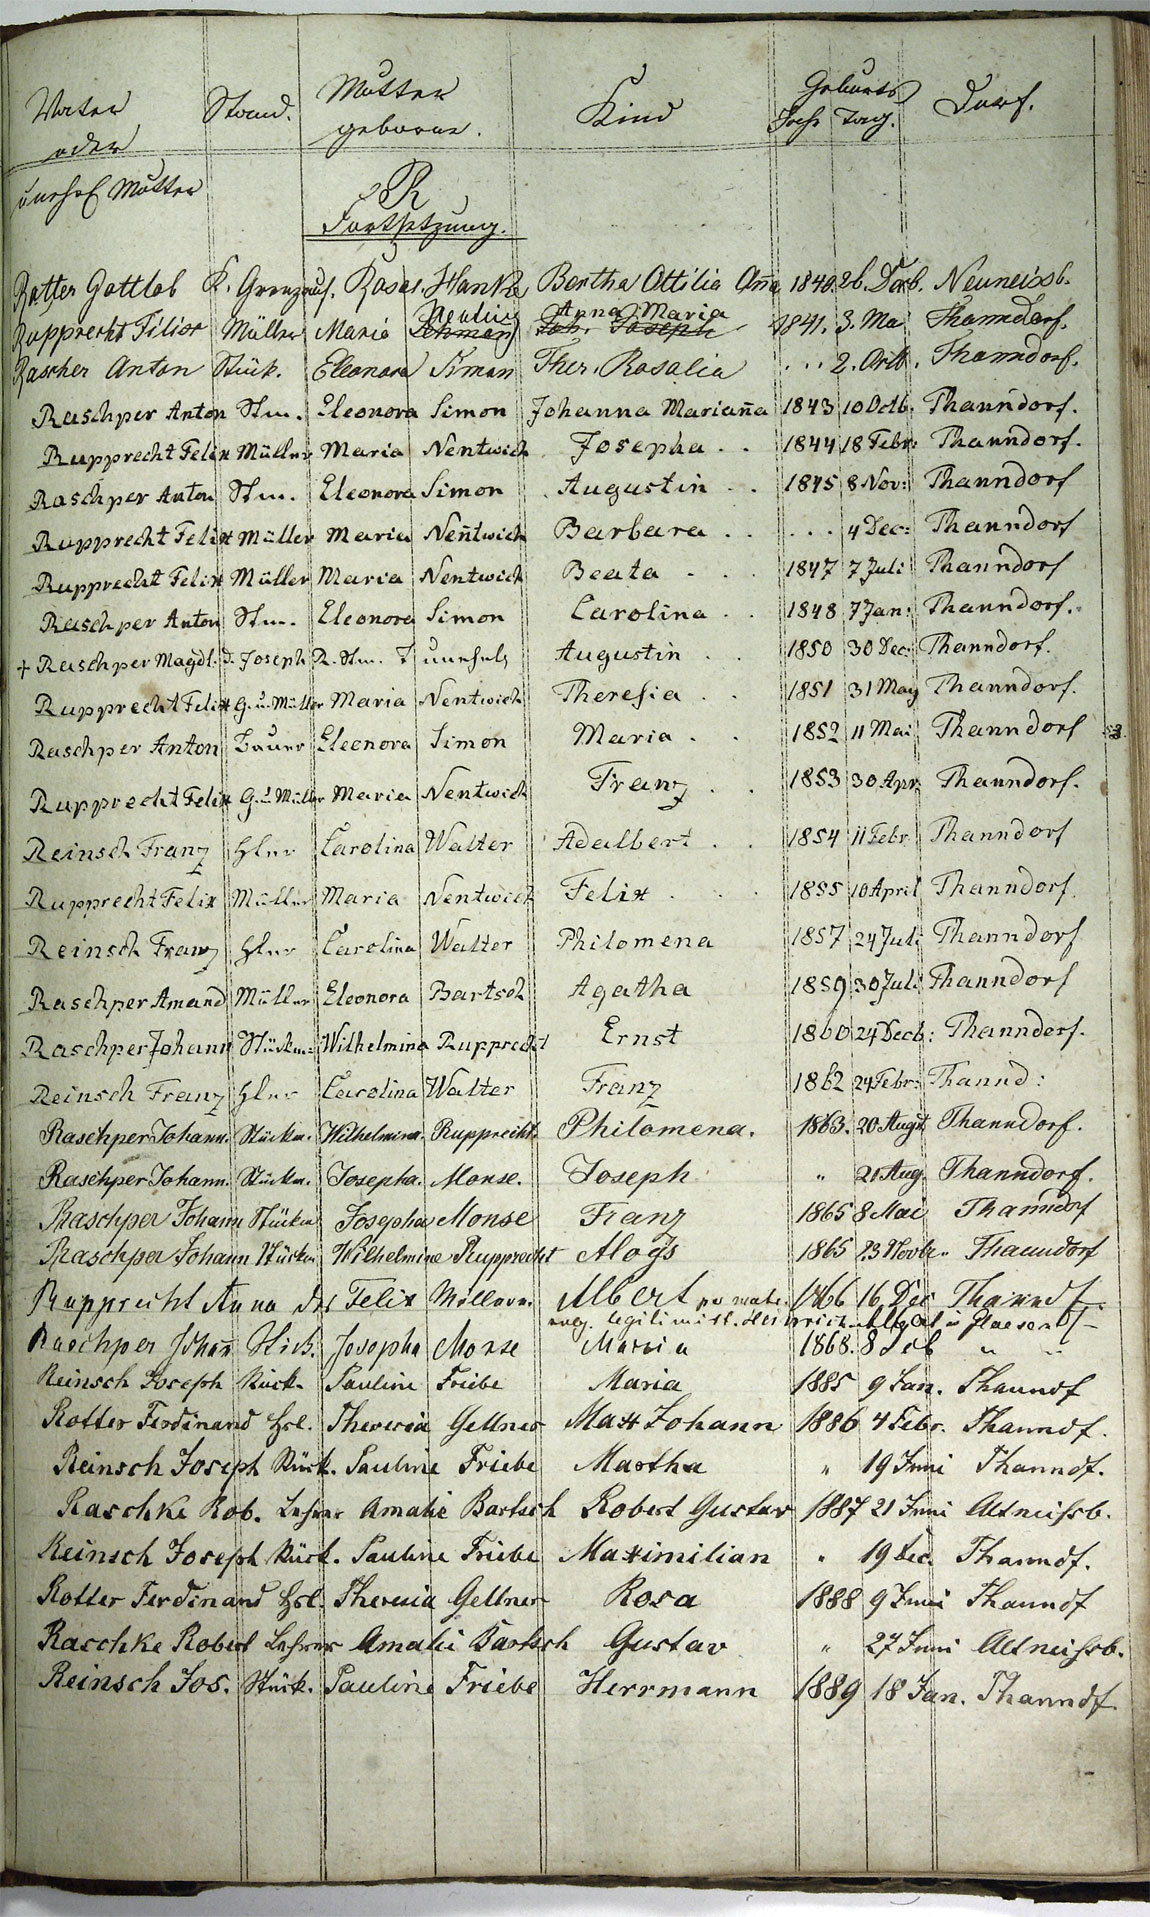 Vater Stand. Mutter Kind Geburts Dorf.
oder geborne. Jahr Tag.
unehel Mutter
R
Fortsetzung.
Rotter Gottlob K. Grenzauf. Rosal. Hanke Bertha Ottilia Aña 1840. 26. Dorf.
Rupprecht Müller Maria Anna Maria 1841. 3. Mai Thanndorf.
Rascher Anton Stück. Eleonora Simon Ther. Rosalia . . . 2. Octb. Thanndorf.
Raschper Anton Stm. Eleonora Simon Johanna Mariaña 1843 10 Octb. Thanndorf.
Rupprecht Felix Müller Maria Nentwich Josepha . . 1844 18 Febr: Thanndorf.
Raschper Anton Stm. Eleonora Simon Augustin . . 1845 8 Nov: Thanndorf
Rupprecht Felix Müller Maria Neñtwich Barbara . . . . . 4 Dec: Thanndorf
Rupprecht Felix Müller Maria Nentwich Beata . . . 1847 7 Juli Thanndorf
Raschper Anton Stm. Eleonora Simon Carolina . 1848 7 Jan: Thanndorf.
+ Raschper Magdl. d. Joseph R. Stm. T unehel Augustin . . 1850 30 Dec: Thanndorf.
Rupprecht Felix G. u. Müller Maria Nentwich Theresia . . 1851 31 May Thanndorf.
Raschper Anton Bauer Eleonora Simon Maria . . 1852 11 Mai Thanndorf
Rupprecht Felix G. u. Müller Maria Nentwich Franz . . 1853 30 Apr. Thanndorf.
Reinsch Franz Hler Carolina Walter Adalbert . . 1854 11 Febr. Thanndorf
Rupprecht Felix Müller Maria Nentwich Felix . . . 1855 10 April Thanndorf.
Reinsch Franz Hler Carolina Walter Philomena 1857 24 Juli Thanndorf
Raschper Amand Müller Eleonora Bartsch Agatha 1859 30 Juli Thanndorf
Raschper Johann Stückm: Wilhelmina Rupprecht Ernst 1860 24 Decb: Thanndorf.
Reinsch Franz Hler Carolina Walter Franz 1862 24 Febr: Thannd:
Raschper Johann. Stückm. Wilhelmina. Rupprecht. Philomena. 1863. 20 Augst Thanndorf.
Raschper Johann. Stückm. Josepha. Monse. Joseph " 21 Aug. Thanndorf.
Raschper Johann Stückm Josepha Monse Franz 1865 8 Mai Thanndorf
Raschper Johann Stückm Wilhelmine Rupprecht Aloys 1865 23 Novbr. Thanndorf
Rupprecht Anna des Felix Müllers. Albert 1866 16 Dec Thanndf
legitimirt. Heinrich
Raschper Johañ Stück. Josepha Monse Maria 1868. 8 Feb " "
Reinsch Joseph Stück. Pauline Friebe Maria 1885 9 Jan. Thanndf
Rotter Ferdinand Hsl. Theresia Gellner Max Johann 1886 4 Febr. Thanndf.
Reinsch Joseph Stück. Pauline Friebe Martha " 19 Juni Thanndf.
Raschke Rob. Lehrer Amalie Bartsch Robert Gustav 1887 21 Juni Altneissb.
Reinsch Joseph Stück. Pauline Friebe Maximilian " 19 Dec. Thanndf.
Rotter Ferdinand Hsl. Theresia Gellner Rosa 1888 9 Juni Thanndf
Raschke Robert Lehrer Amalie Bartsch Gustav " 27 Juni Altneissb.
Reinsch Jos. Stück. Pauline Friebe Herrmann 1889 18 Jan. Thanndf.